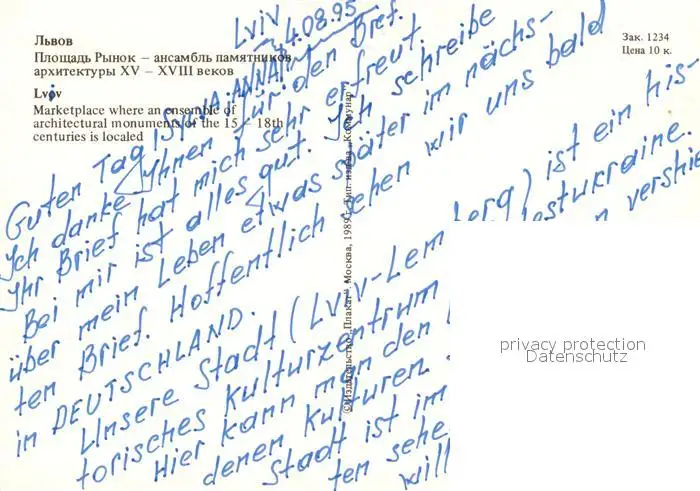 Львов
Площадь Рынок – ансамбль памятников
архитектуры XV – XVIII веков
Lvov
Marketplace where an ensemble of
architectural monuments of the 15 – 18th
centuries is localed
Зак. 1234
Цена 10 к.
©Издательство „Плакат" Москва, 1989 г. Тип. изд-ва „Коммунар"
Lviv
24.08.95
Guten Tag,
Ich danke Ihnen für den Brief.
Ihr Brief hat mich sehr erfreut.
Bei mir ist alles gut. Ich schreibe
über mein Leben etwas später im nächs-
ten Brief. Hoffentlich sehen wir uns bald
in DEUTSCHLAND.
Unsere Stadt (Lviv-Lemberg) ist ein his-
torisches Kulturzentrum Westukraine.
Hier kann man den verschie
denen Kulturen
Stadt ist im
ten sehe
will
privacy protection
Datenschutz